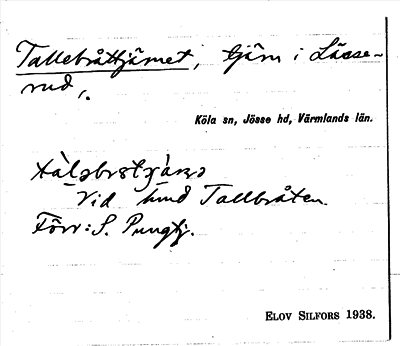 Tallebråttjärnet, tjärn i Lässe-
rud,.
Köla sn, Jösse hd, Värmlands län.
Vid hmd Tallbråten.
Förr: S. Pungtj.
ELOV SILFORS 1938.